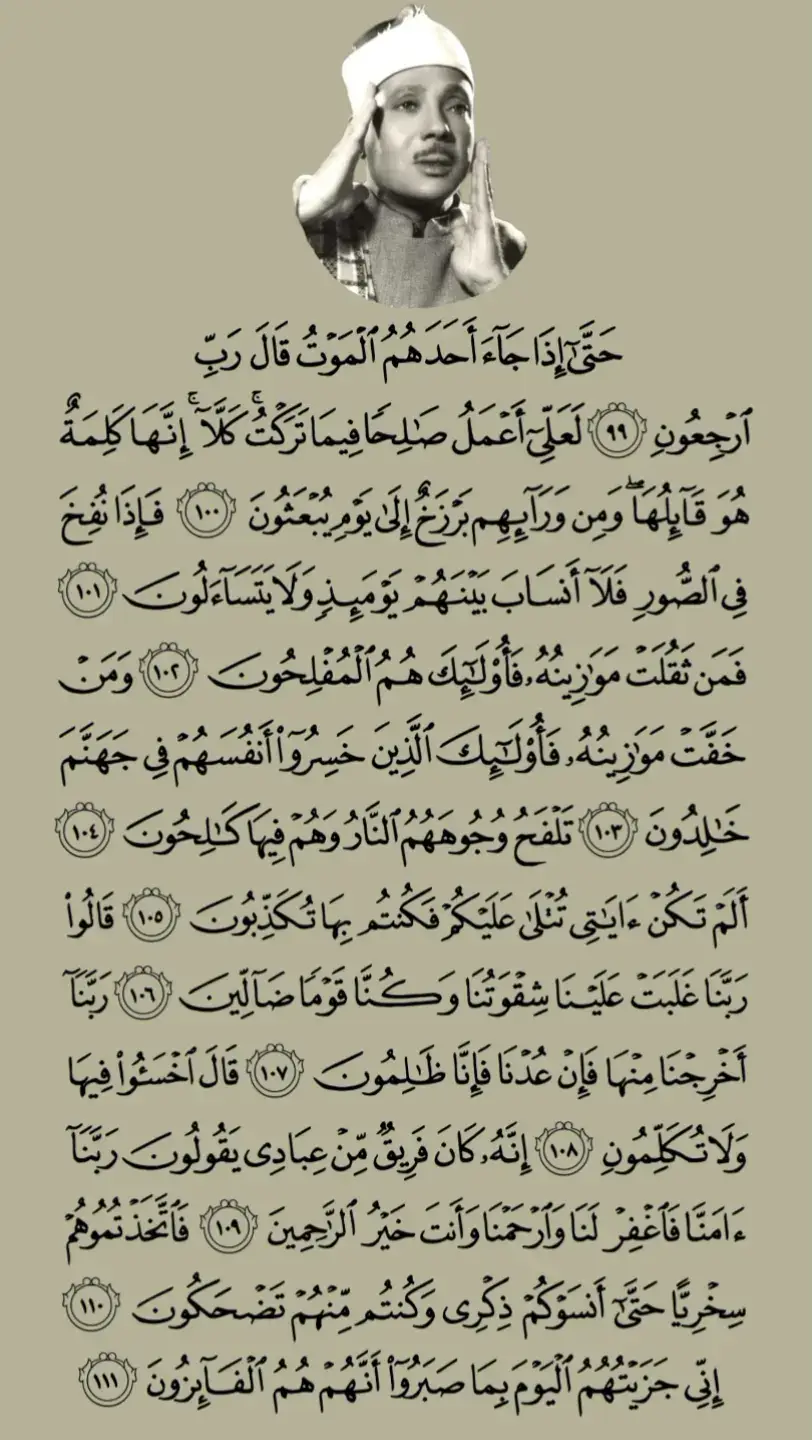 حَتَّىٰٓ إِذَا جَآءَ أَحَدَهُمُ ٱلْمَوْتُ قَالَ رَبِّ
ٱرْجِعُونِ ٩٩ لَعَلِّىٓ أَعْمَلُ صَٰلِحًا فِيمَا تَرَكْتُ ۚ كَلَّآ ۚ إِنَّهَا كَلِمَةٌ
هُوَ قَآئِلُهَا ۖ وَمِن وَرَآئِهِم بَرْزَخٌ إِلَىٰ يَوْمِ يُبْعَثُونَ ١٠٠ فَإِذَا نُفِخَ
فِى ٱلصُّورِ فَلَآ أَنسَابَ بَيْنَهُمْ يَوْمَئِذٍ وَلَا يَتَسَآءَلُونَ ١٠١
فَمَن ثَقُلَتْ مَوَٰزِينُهُۥ فَأُو۟لَٰٓئِكَ هُمُ ٱلْمُفْلِحُونَ ١٠٢ وَمَنْ
خَفَّتْ مَوَٰزِينُهُۥ فَأُو۟لَٰٓئِكَ ٱلَّذِينَ خَسِرُوٓا۟ أَنفُسَهُمْ فِى جَهَنَّمَ
خَٰلِدُونَ ١٠٣ تَلْفَحُ وُجُوهَهُمُ ٱلنَّارُ وَهُمْ فِيهَا كَٰلِحُونَ ١٠٤
أَلَمْ تَكُنْ ءَايَٰتِى تُتْلَىٰ عَلَيْكُمْ فَكُنتُم بِهَا تُكَذِّبُونَ ١٠٥ قَالُوا۟
رَبَّنَا غَلَبَتْ عَلَيْنَا شِقْوَتُنَا وَكُنَّا قَوْمًا ضَآلِّينَ ١٠٦ رَبَّنَآ
أَخْرِجْنَا مِنْهَا فَإِنْ عُدْنَا فَإِنَّا ظَٰلِمُونَ ١٠٧ قَالَ ٱخْسَـُٔوا۟ فِيهَا
وَلَا تُكَلِّمُونِ ١٠٨ إِنَّهُۥ كَانَ فَرِيقٌ مِّنْ عِبَادِى يَقُولُونَ رَبَّنَآ
ءَامَنَّا فَٱغْفِرْ لَنَا وَٱرْحَمْنَا وَأَنتَ خَيْرُ ٱلرَّٰحِمِينَ ١٠٩ فَٱتَّخَذْتُمُوهُمْ
سِخْرِيًّا حَتَّىٰٓ أَنسَوْكُمْ ذِكْرِى وَكُنتُم مِّنْهُمْ تَضْحَكُونَ ١١٠
إِنِّى جَزَيْتُهُمُ ٱلْيَوْمَ بِمَا صَبَرُوٓا۟ أَنَّهُمْ هُمُ ٱلْفَآئِزُونَ ١١١